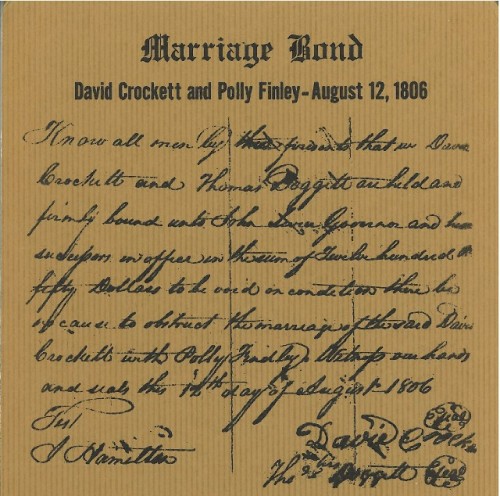 Marriage Bond
David Crockett and Polly Finley-August 12, 1806
Know all men by these presents that we David
Crockett and Thomas Doggett are held and
firmly bound unto John Sevier Governor and his
successors in office in the sum of Twelve hundred &
fifty Dollars to be void on condition there be
no cause to obstruct the marriage of the said David
Crockett with Polly Findley Witness our hands
and seals this 12th day of August 1806
Test
J Hamilton
David Crockett Seal
Tho Doggett Seal